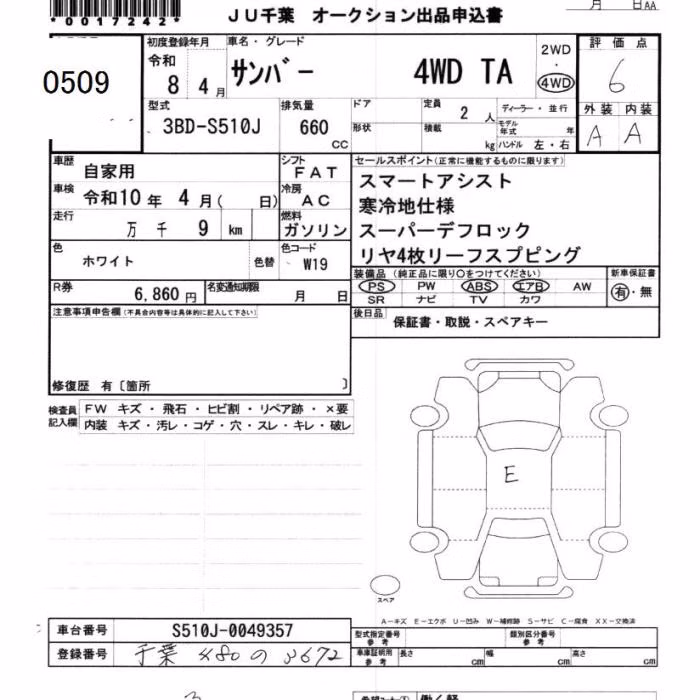 月 日 AA
*0017242*
JU千葉 オークション出品申込書
0509
初度登録年月 車名・グレード 2WD ・ 4WD 評価点
令和 8 4月 サンバー 4WD TA 6
型式 排気量 ドア 定員 2 人 ディーラー・並行 外装 内装
3BD-S510J 660 CC 形状 積載 kg モデル年式 年 ハンドル 左・右 A A
車歴 自家用 シフト FAT セールスポイント(正常に機能するものに限ります)
車検 令和10年 4月( 日) 冷房 AC スマートアシスト
寒冷地仕様
走行 万 千 9 km 燃料 ガソリン スーパーデフロック
色 ホワイト 色替 色コード W19 リヤ4枚リーフスプピング
装備品(純正品に限り○をつけてください) 新車保証書
R券 6,860円 名変通知期限 月 日 PS PW ABS エアB AW 有・無
SR ナビ TV カワ
注意事項申告欄(不具合内容等は具体的に記入して下さい) 後日品 保証書・取説・スペアキー
修復歴 有〔箇所 〕
検査員記入欄 FW キズ・飛石・ヒビ割・リペア跡・×要
内装 キズ・汚レ・コゲ・穴・スレ・キレ・破レ
E
スペア
A－キズ E－エクボ U－凹み W－補修跡 S－サビ C－腐食 XX－交換済
車台番号 S510J-0049357 型式指定番号 参考 類別区分番号 参考
登録番号 千葉 480 の 3672 車庫証明用 参考 長さ cm 幅 cm 高さ cm